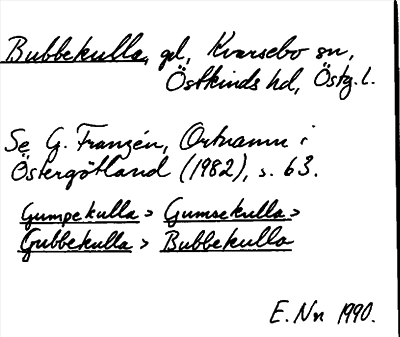 Bubbekulla, gd, Kvarsebo sn,
Östkinds hd, Östg. l.
Se G. Franzén, Ortnamn i
Östergötland (1982), s. 63.
Gumpekulla > Gumsekulla >
Gubbekulla > Bubbekulla
E. Nn 1990.